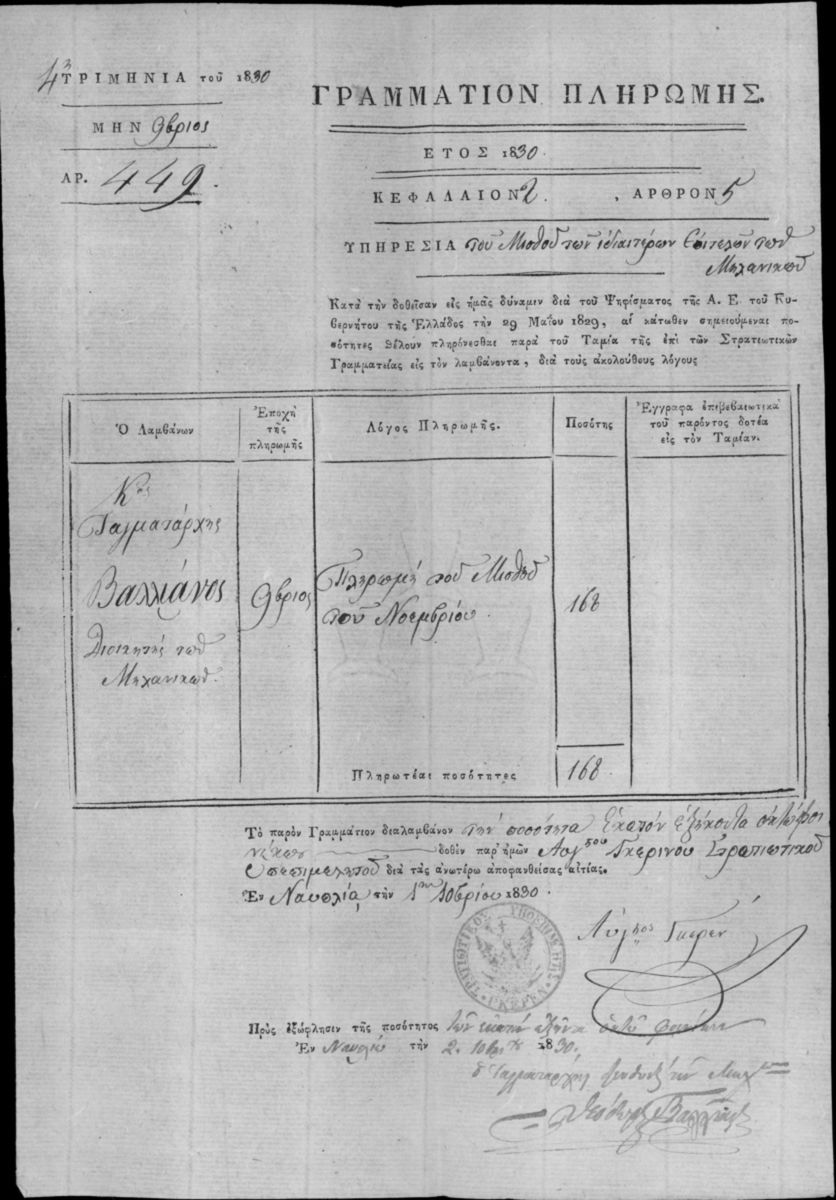 4 ΤΡΙΜΗΝΙΑ τοῦ 1830
ΜΗΝ 9βριος
ΑΡ. 449.
ΓΡΑΜΜΑΤΙΟΝ ΠΛΗΡΩΜΗΣ.
ΕΤΟΣ 1830.
ΚΕΦΑΛΑΙΟΝ 2. , ΑΡΘΡΟΝ 5
ΥΠΗΡΕΣΙΑ τοῦ Μισθοῦ τῶν ἰδιαιτέρων τοῦ
Μηχανικοῦ
Κατὰ τὴν δοθεῖσαν εἰς ἡμᾶς δύναμιν διὰ τοῦ Ψηφίσματος τῆς Α. Ε. τοῦ Κυ-
βερνήτου τῆς Ἑλλάδος τὴν 29 Μαΐου 1829, αἱ κάτωθεν σημειούμεναι πο-
σότητες θέλουν πληρόνεσθαι παρὰ τοῦ Ταμία τῆς ἐπὶ τῶν Στρατιωτικῶν
Γραμματείας εἰς τὸν λαμβάνοντα, διὰ τοὺς ἀκολούθους λόγους
Ὁ Λαμβάνων
Ἐποχὴ
τῆς
πληρωμῆς
Λόγος Πληρωμῆς.
Ποσότης
Ἔγγραφα ἐπιβεβαιωτικὰ
τοῦ παρόντος δοτέα
εἰς τὸν Ταμίαν.
Κος
Ταγματάρχης
Βαλλιάνος
Διοικητὴς τοῦ
Μηχανικοῦ.
9βριος
Πληρωμὴ τοῦ Μισθοῦ
τοῦ Νοεμβρίου
168
Πληρωτέαι ποσότητες
168
Τὸ παρὸν Γραμμάτιον διαλαμβάνον τὴν ποσότητα ἑκατὸν ἑξήκοντα ὀκτὼ φοι
νίκων δοθὲν παρ' ἡμῶν Αὐγ'στου Γκερίνου Στρατιωτικοῦ
Ὑπεπιμελητοῦ διὰ τὰς ἀνωτέρω ἀποφανθείσας αἰτίας.
Ἐν Ναυπλίᾳ τὴν 1ην 10βρίου 1830.
ΣΤΡΑΤΙΩΤΙΚΟΣ ΥΠΕΠΙΜΕΛΗΤΗΣ
ΓΚΕΡΕΝ
Αὐγ'στος Γκερέν
Πρὸς ἐξώφλησιν τῆς ποσότητος τῶν ἑκατὸν ἑξῆντα ὀκτὼ φοινίκων
Ἐν Ναυπλίῳ τὴν 2. 10βρίου 1830.
ὁ Ταγματάρχης
Θεόδωρος Βαλλιάνος